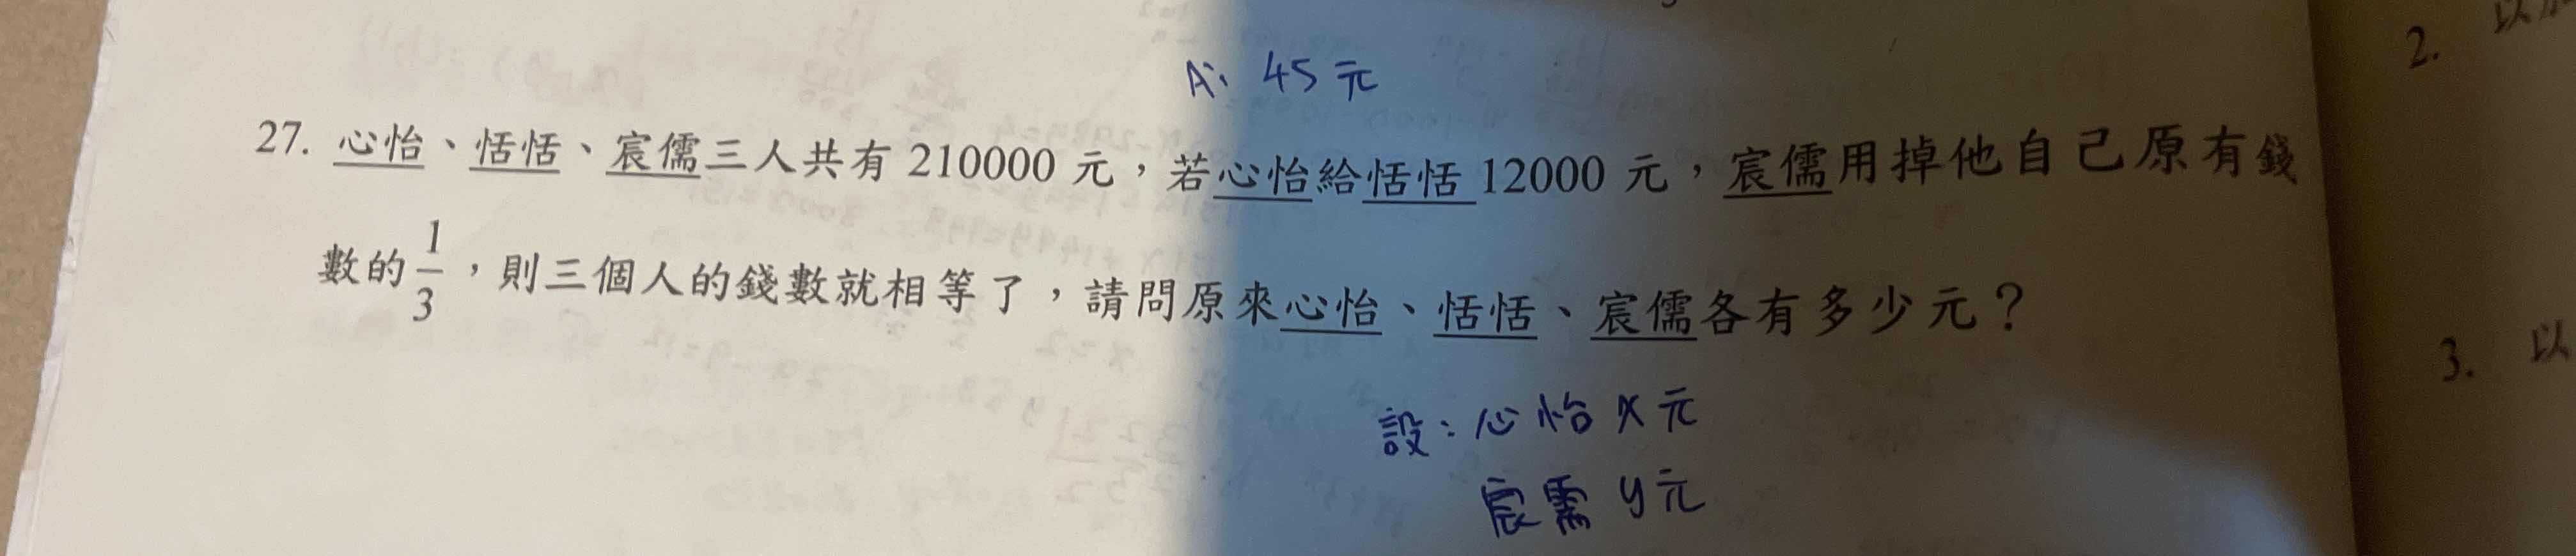 A: 45元
27. 心怡、恬恬、宸儒三人共有 210000 元，若心怡給恬恬 12000 元，宸儒用掉他自己原有錢
數的 1/3，則三個人的錢數就相等了，請問原來心怡、恬恬、宸儒各有多少元？
設：心怡 x 元
宸需 y 元
2. 以
3. 以